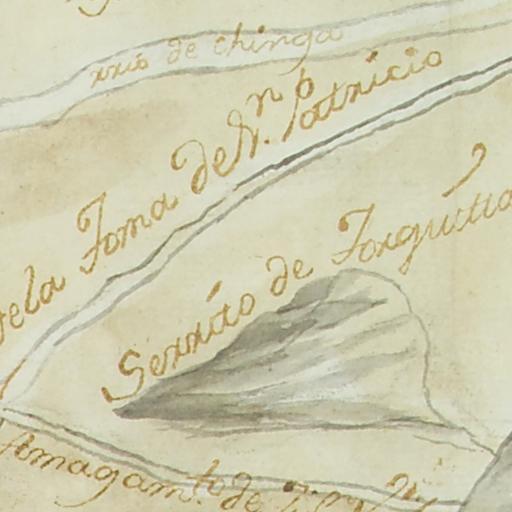 rrio de Chinga
de la Toma de Sn. Patricio
Serrito de Jorgutia
Amagamto. de